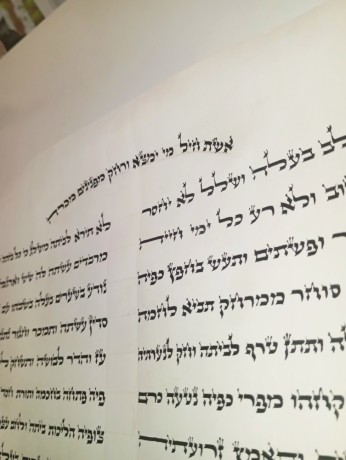 אשת חיל מי ימצא ורחק מפנינים מכרה
לב בעלה ושלל לא יחסר
ולא רע כל ימי חייה
ופשתים ותעש בחפץ כפיה
סוחר ממרחק תביא לחמה
ותתן טרף לביתה וחק לנערתיה
מפרי כפיה נטעה כרם
ותאמץ זרועתיה
לא תירא לביתה משלג כי כל
מרבדים עשתה לה שש
נודע בשערים בעלה בשבתו עם
סדין עשתה ותמכר וחגור
עז והדר לבושה ותשחק
פיה פתחה בחכמה ותורת
צופיה הליכות ביתה ולחם